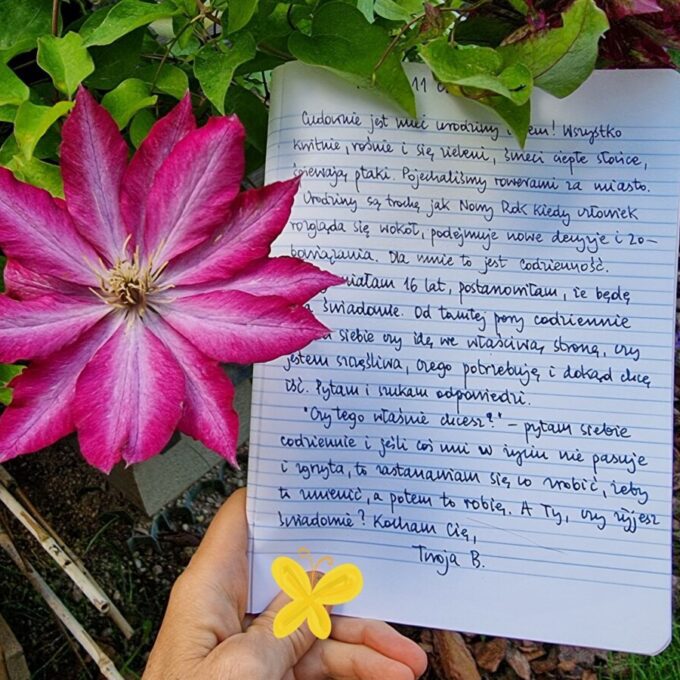 11
Cudownie jest mieć urodziny Wszystko
kwitnie, rośnie i się zieleni, świeci ciepłe słońce,
śpiewają ptaki. Pojechaliśmy rowerami za miasto.
Urodziny są trochę jak Nowy Rok kiedy człowiek
rozgląda się wokół, podejmuje nowe decyzje i zo-
bowiązania. Dla mnie to jest codzienność.
miałam 16 lat, postanowiłam, że będę
świadomie. Od tamtej pory codziennie
siebie czy idę we właściwą stronę, czy
jestem szczęśliwa, czego potrzebuję i dokąd chcę
iść. Pytam i szukam odpowiedzi.
"Czy tego właśnie chcesz?" - pytam siebie
codziennie i jeśli coś mi w życiu nie pasuje
i zgrzyta, to zastanawiam się co zrobić, żeby
to zmienić, a potem to robię. A Ty, czy żyjesz
świadomie? Kocham Cię,
Twoja B.